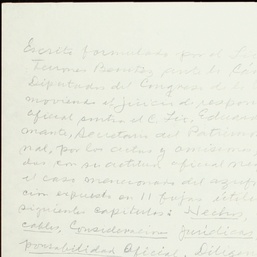 Escrito formulado por el Lic.
Diputados del Congreso de la
moviendo el juicio de respon
oficial contra el C. Lic. Eduard
Secretario del Patrimo
nal, por los actos y omisiones
con su actitud oficial
el caso mencionado del
cion expuesto en 11 fojas útiles
siguientes capítulos: Hechos,
Consideraciones jurídicas
ponsabilidad Oficial, Diligen